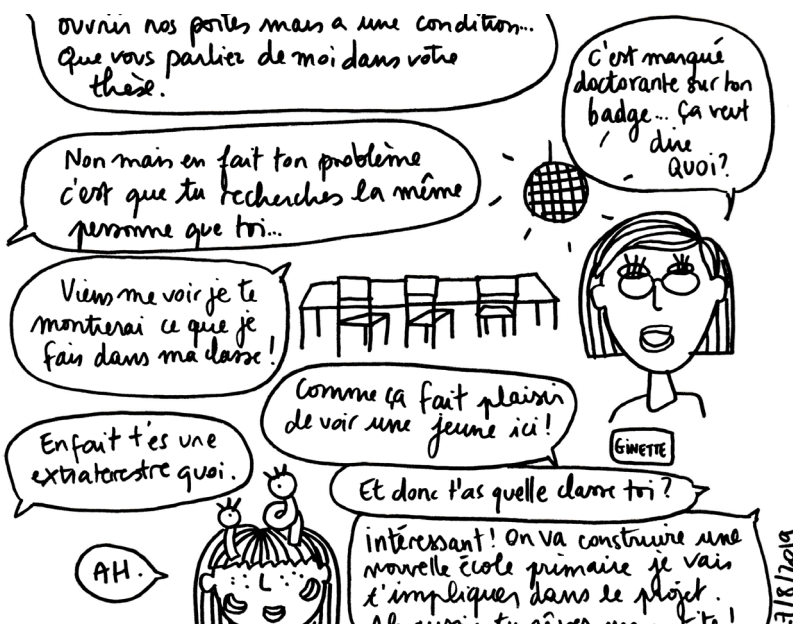 ouvrir nos portes mais à une condition...
Que vous parliez de moi dans votre
thèse.
C'est marqué
doctorante sur ton
badge... Ça veut
dire
QUOI?
Non mais en fait ton problème
c'est que tu recherches la même
personne que toi...
Viens me voir je te
montrerai ce que je
fais dans ma classe!
Comme ça fait plaisir
de voir une jeune ici!
GINETTE
En fait t'es une
extraterestre quoi.
Et donc t'as quelle classe toi?
AH.
intéressant! On va construire une
nouvelle école primaire je vais
t'impliquer dans le projet.